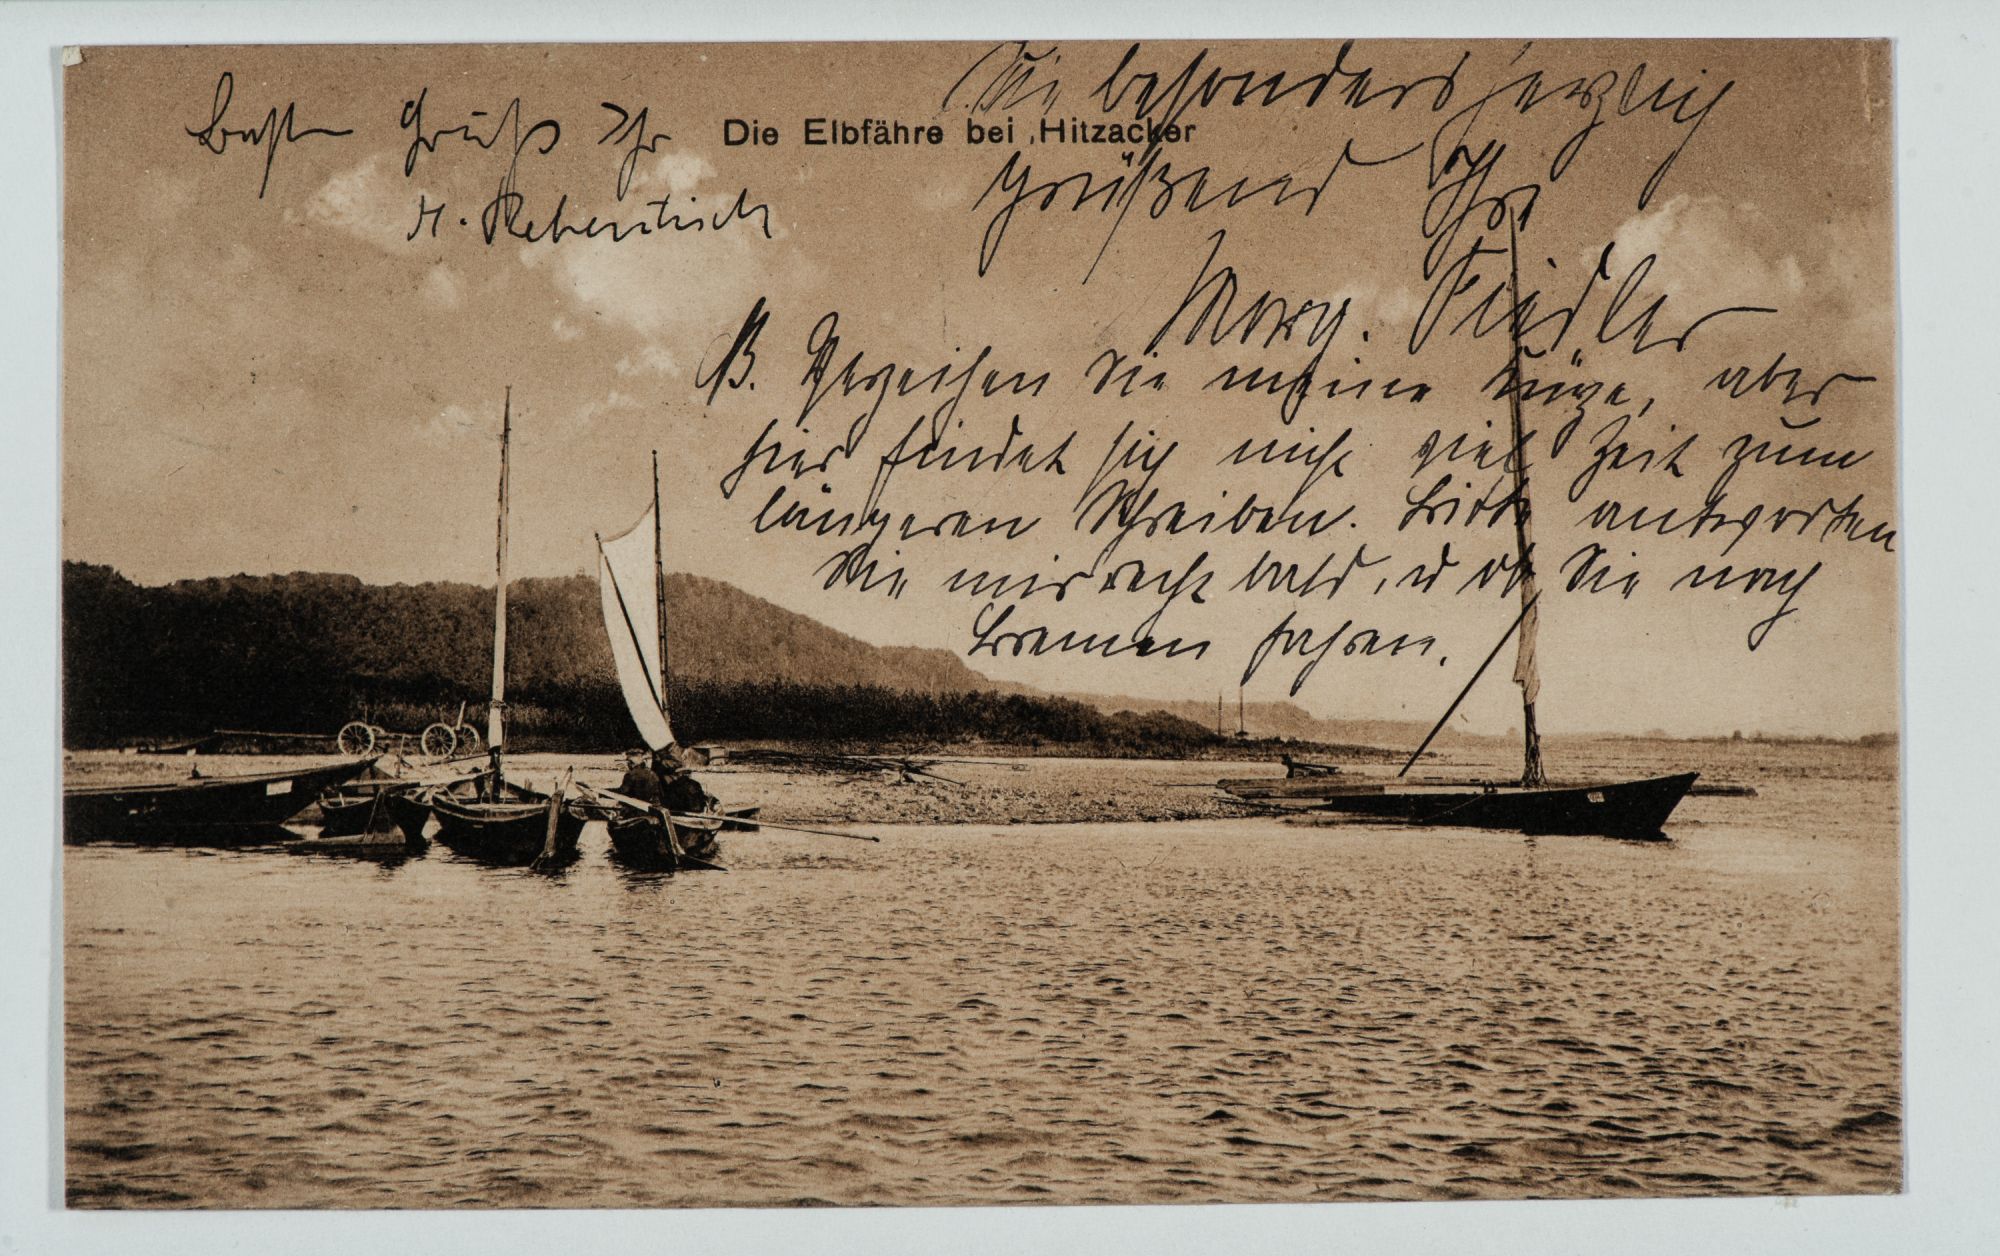 Die Elbfähre bei Hitzacker
Besten Gruß Ihr
H. Rebentisch
Sie besonders herzlich
grüßend Ihr
Marg. Fiedler
Verzeihen Sie meine Kürze, aber
hier findet sich nicht viel Zeit zum
längeren Schreiben. Bitte antworten
Sie mir recht bald, u ob Sie nach
Bremen fahren.